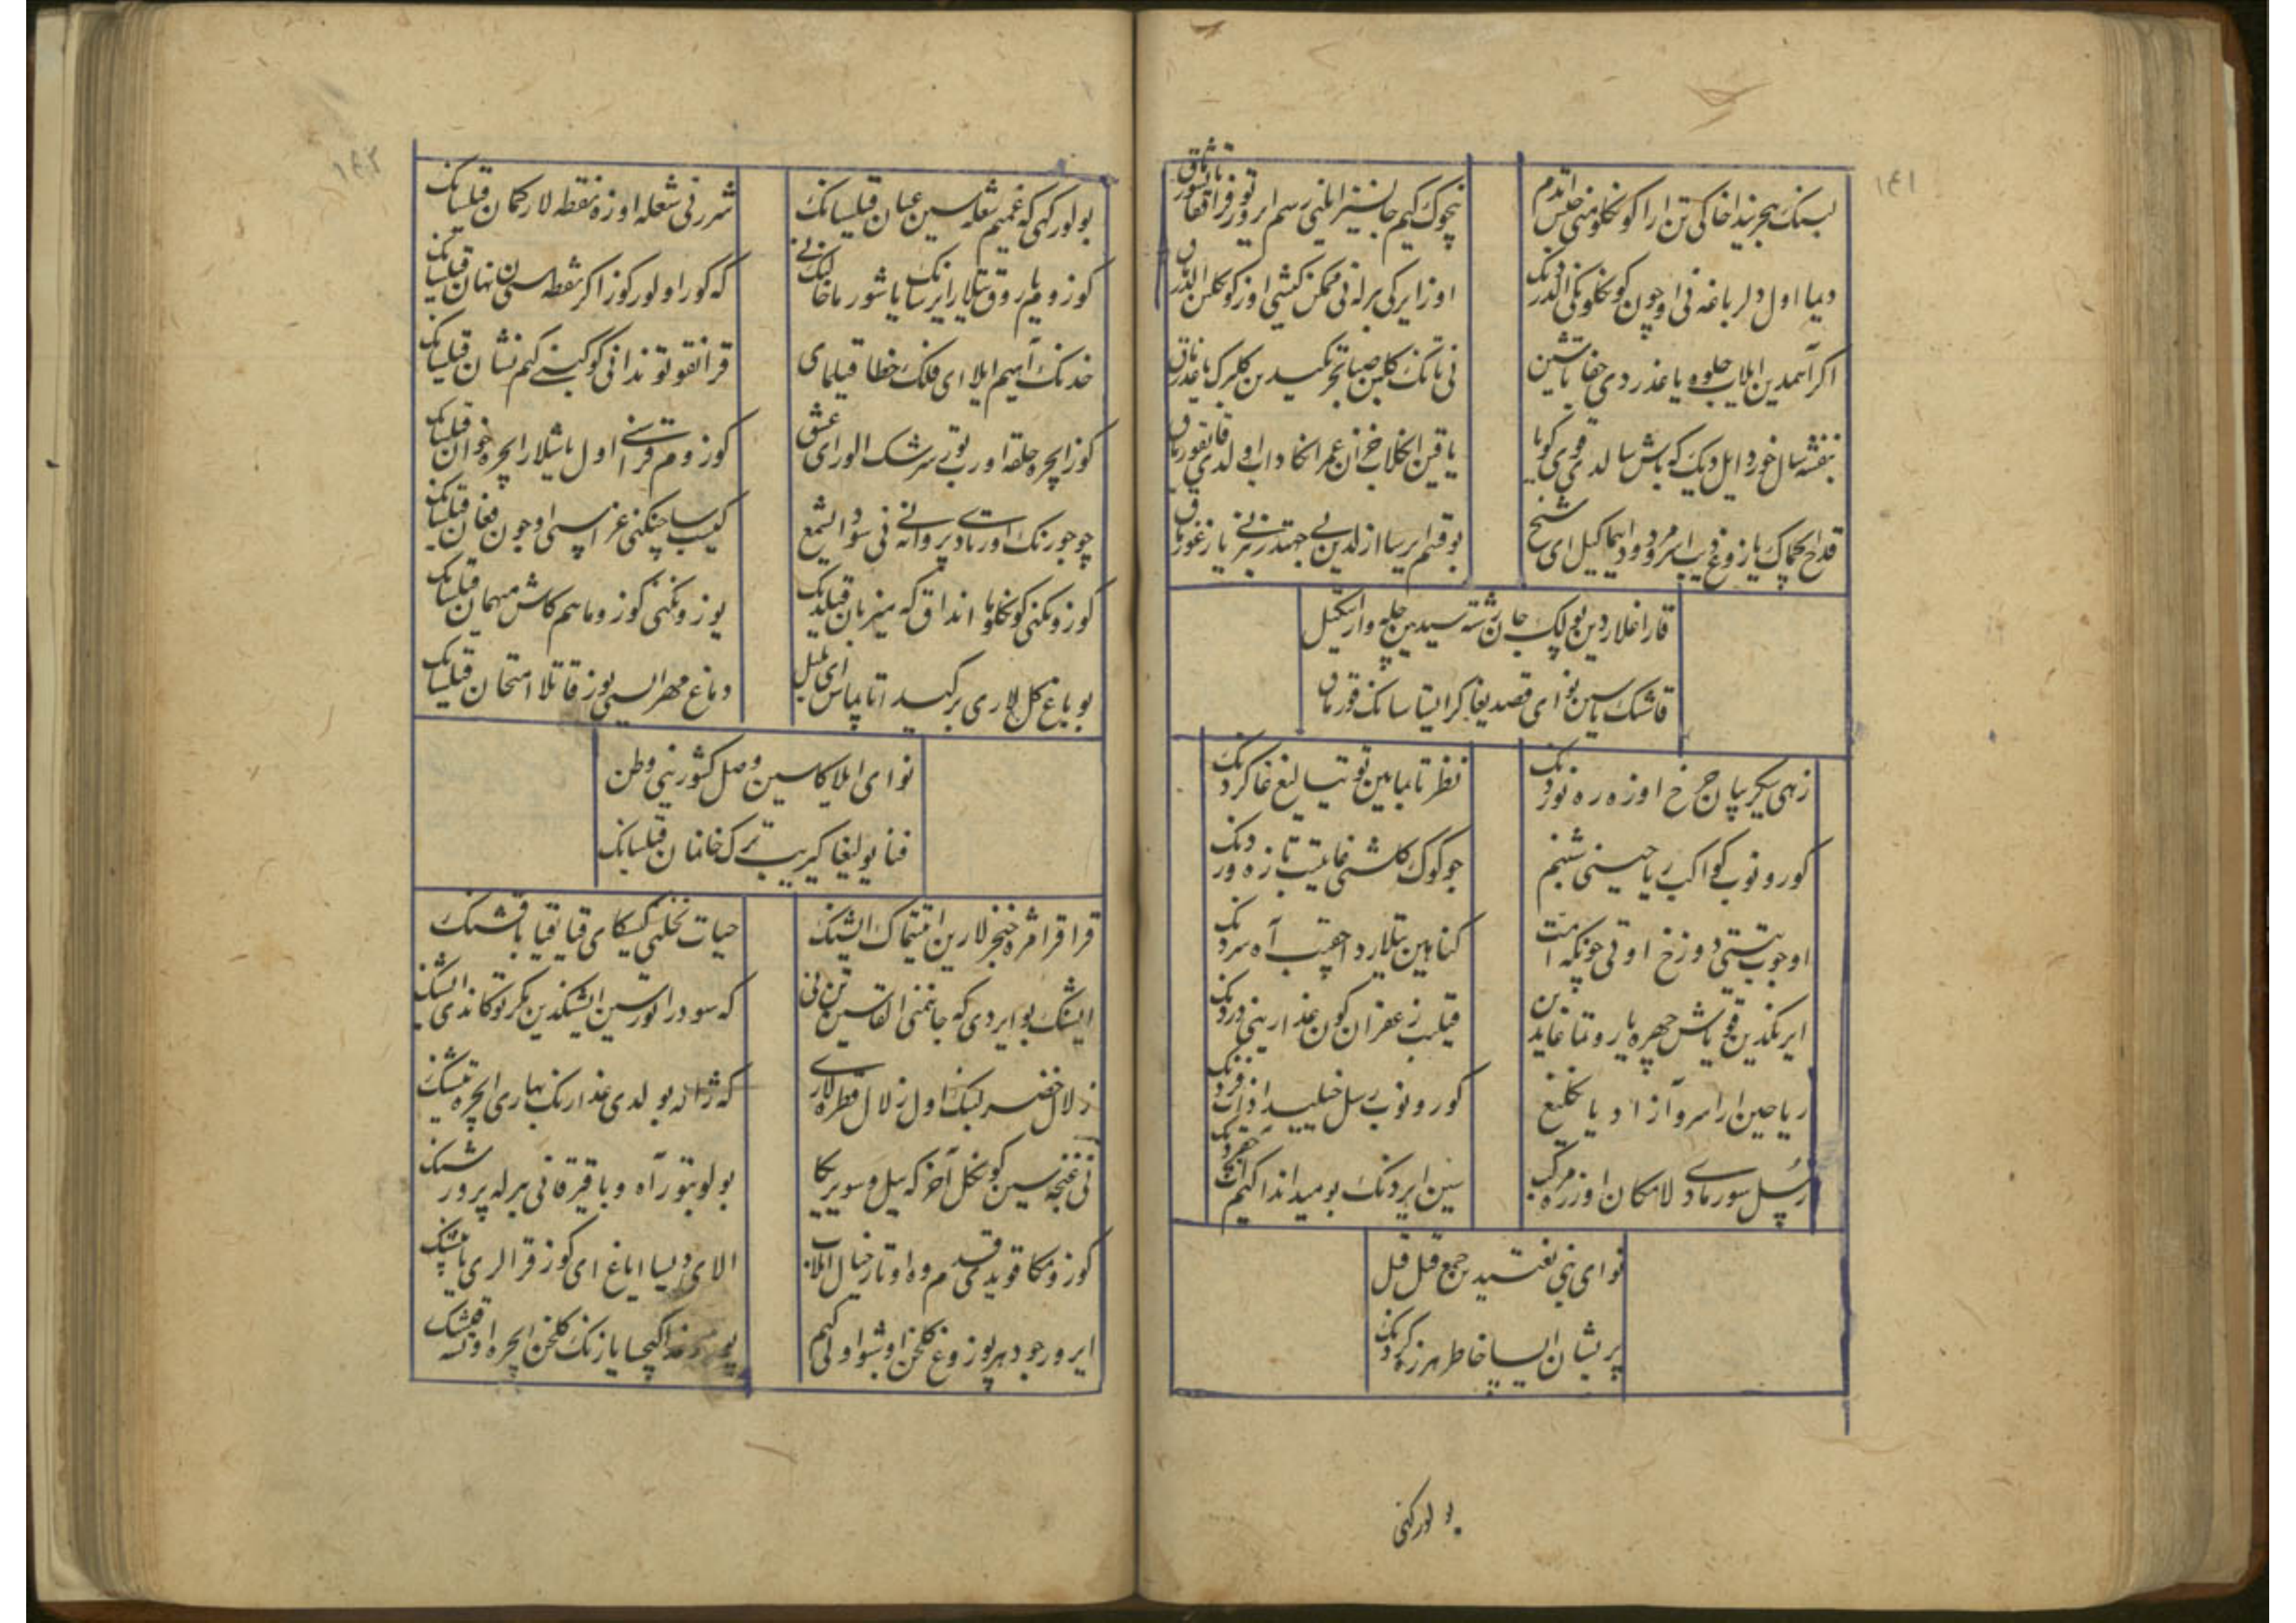 ۱۴۱
لبنک هجریدا خاکی تن ارا کونکلومنی حبس ایتدم
نچوک کیم جانسیز ایلنی رسم ایرور توفراقغا تاشورماق
دیما اول دلرباغه نی اوچون کونکلونکنی الدردنک
اوز ایرکی برله نی ممکن کیشی اوز کونکلین الدرماق
اکر آهمدین ایلاب جلوه یاغدردی جفا تاشین
نی تانک کلبن صبا تحریکیدین کلبرک یاغدرماق
بنفشه سال خورد ایل دیک که باش سالدی قوی کویا
یاقین انکلاب خزان عمر انکا داب اولدی قایغورماق
قدح ایچماک یازوغ دیب امر معروف ایما کیل ای شیخ
بو قسم ایرسا ازلدین بی جهتدر بیزنی یازغورماق
قارا غلاردین بو لیک جان رشته سیدین حلیه وار ایتکیل
قاشنک یاسین نوای قصدیغا کر ایستاسانک قورماق
زهی سیکریبان چرخ اوزه ره نوردنک
نظر تابمایین توتیالیغ غا کردنک
کورونوب کواکب ریاحینی شبنم
چو کوک کلشنی غا یتیب تازه وردنک
اوچوب بستی دوزخ اوتی چونکه امت
کناهین تیلاردا چیقیب آه سردنک
ایرنکدین قویاش چهره یاروتماغایدین
قیلیب زعفران کون عذارینی دردنک
ریاحین ارا سرو آزاد یانکلیغ
کورونوب رسل خیلیدا ذات فردنک
رسل سورمادی لامکان اوزره مرکب
سین ایردنک بو میداندا کیم
نوای نی نفسیدین جمع قیل قیل
پریشان ایسا خاطر هرزه کردنک
بولورکنی
۱۴۲
بولور کنی که غمیم شعله سین عیان قیلسانک
شررنی شعله اوزه نقطه لار کمان قیلسانک
کوزوم یاروق تیلار ایرسانک یاشورما خالنکنی
که کور اولور کوز اکر نقطه سین نهان قیلسانک
خدنک آهیم ایلا ای فلک خطا قیلمای
قرانغو توندا نی کوکبنی کیم نشان قیلسانک
کوز ایچره حلقه اورر توبی سرشک الور ای عشق
کوزوم قراسینی اول باشیلار ایچره خوان قیلسانک
چو جورنک اوتی اورتادی پروانه نی نی سود ای شمع
کییب ساچنکنی عزاسی اوچون فغان قیلسانک
کوزونکنی کونکلوما انداق که میزبان قیلدنک
یوزونکنی کوزوما هم کاش میهمان قیلسانک
بو باغ کل لاری بر کیدا تاپماس ای بلبل
دماغ مهر ایسینی یوز قاتلا امتحان قیلسانک
نوای ایلاکاسین وصل کشورینی وطن
فنا یولیغا کیریب ترک خانمان قیلسانک
قرا قرا مژه خنجرلارین ایتماک ایشنک
حیات نخلنی کیسکای قیا قیا باقشنک
ایشنک بو ایردی که جانمنی القاسین تن نی
که سودراتورسین ایشنکدین مکر توکاندی ایشنک
زلال خضر لبنک اول زلال قطره لاری
که ژاله بولدی عذارنک بهاری ایچره تیشنک
نی غنجه سین کونکل آخر که ییل و سو بیریکا
بولوبتور آه و یا قیزقانی برله پرورشنک
کوزومکا قویدی قدم وه اوتار خیال ایلاب
الای دیسا ایاغ ای کوز قرالری یاپشنک
ایرور جودهر یوزوغ کلخن اوشول اوتی کیم
کیچسا یازنک کلخن ایچره اوتسه قیشنک